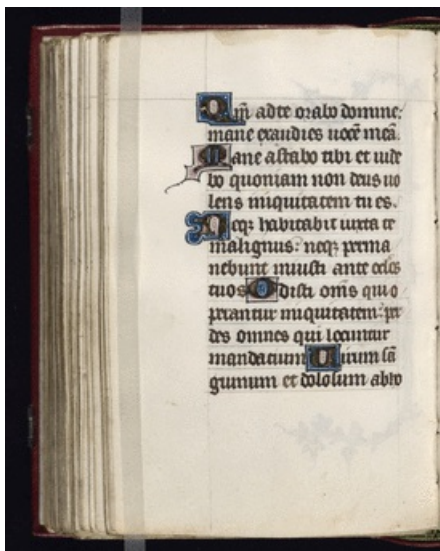 Qm̄ ad te orabo domine:
mane exaudies uocē meā.
Mane astabo tibi et uide
bo quoniam non deus uo
lens iniquitatem tu es.
Neqꝫ habitabit iuxta te
malignus: neqꝫ perma
nebunt iniusti ante oculos
tuos Odisti om̄s qui o
perantur iniquitatem: per
des omnes qui locuntur
mendacium Uirum sā
guinum et dolosum abho